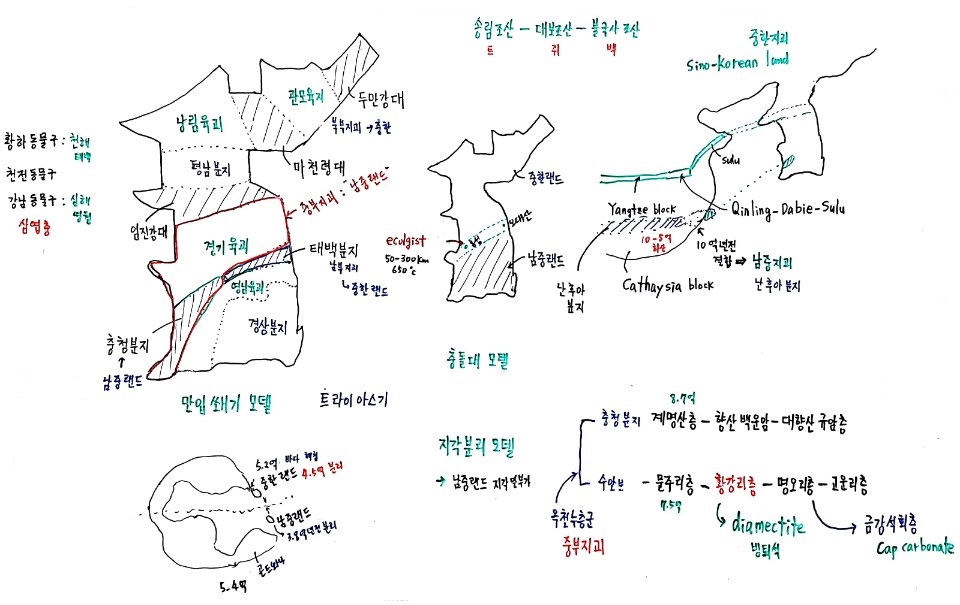 송림조산 - 대보조산 - 불국사 조산
트 쥐 백
중한지괴
Sino-Korean land
관모육괴
두만강대
북부지괴 → 중한
낭림육괴
황하동물구 : 천해
태백
평남분지
마천령대
천전동물구
강남동물구 : 심해
영월
심엽충
임진강대
중부지괴 : "남중랜드"
경기육괴
태백분지
남부지괴
↳ 중한랜드
영남육괴
경상분지
충청분지
↑
남중랜드
만입 쐐기 모델
트라이아스기
중한랜드
오대산
홍성
ecolgist
50-300km
630℃
남중랜드
충돌대 모델
Sulu
Yangtze block
Qinling-Dabie-Sulu
10-5억
화산
10억년전
결합 ⇒ 남중지괴
난후아 분지
난후아
분지
Cathaysia block
지각분리 모델
→ 남중랜드 지각
5.2억 바다
중한랜드 4.5억 분리
남중랜드
3.8억년전 분리
곤드와나
5.4억
8.7억
충청분지 계명산층 - 향산 백운암 - 대향산 규암층
수안보 - 문주리층 - 황강리층 - 명오리층 - 고운리층
7.5억
옥천누층군
중부지괴
diamectite
빙퇴석
금강석회층
Cap carbonate